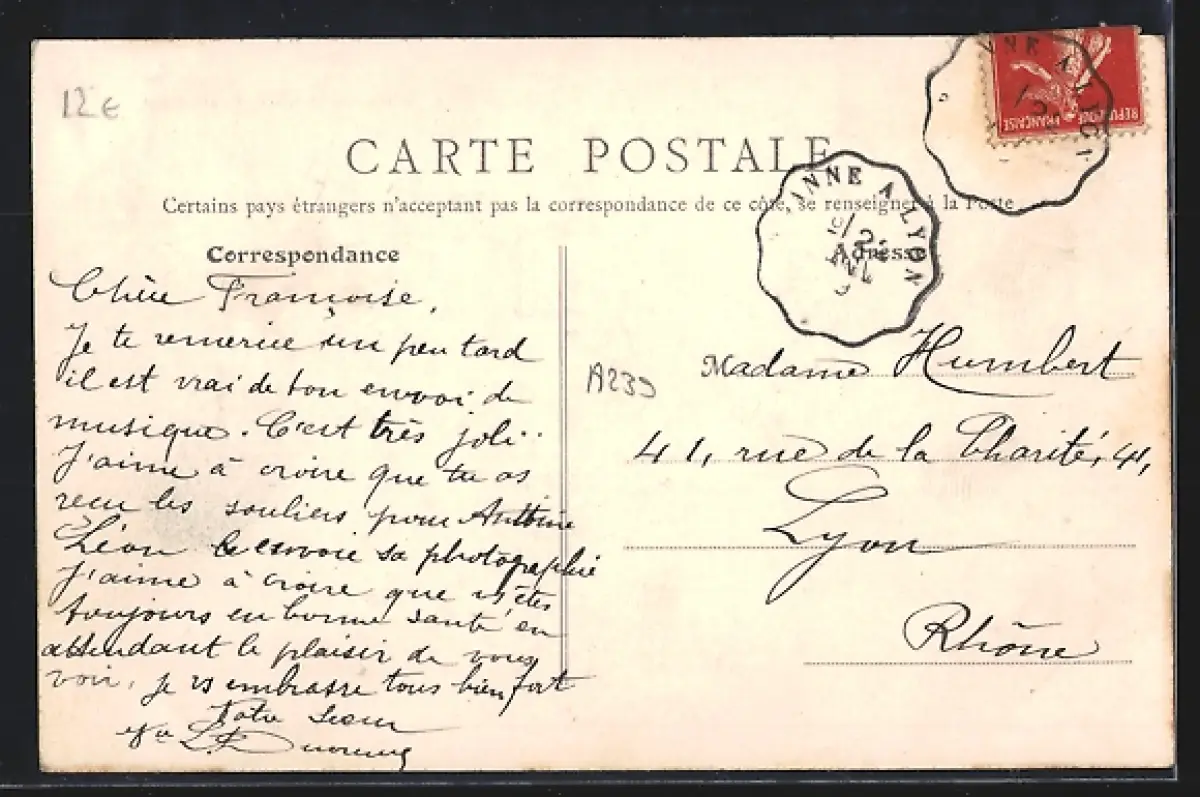 12€
CARTE POSTALE
Certains pays étrangers n'acceptant pas la correspondance de ce côté, se renseigner à la Poste
RÉPUBLIQUE FRANÇAISE
NNE A
ANNE A LYON
Correspondance
Adresse
Chère Françoise,
Je te remercie un peu tard
il est vrai de ton envoi de
musique. C'est très joli.
J'aime à croire que tu as
reçu les souliers pour Antoine
Léon te envoie sa photographie
J'aime à croire que vs êtes
toujours en bonne santé en
attendant le plaisir de vous
voir, je vs embrasse tous bien fort
Votre Sœur
A239
Madame Humbert
41, rue de la Charité, 41,
Lyon
Rhône